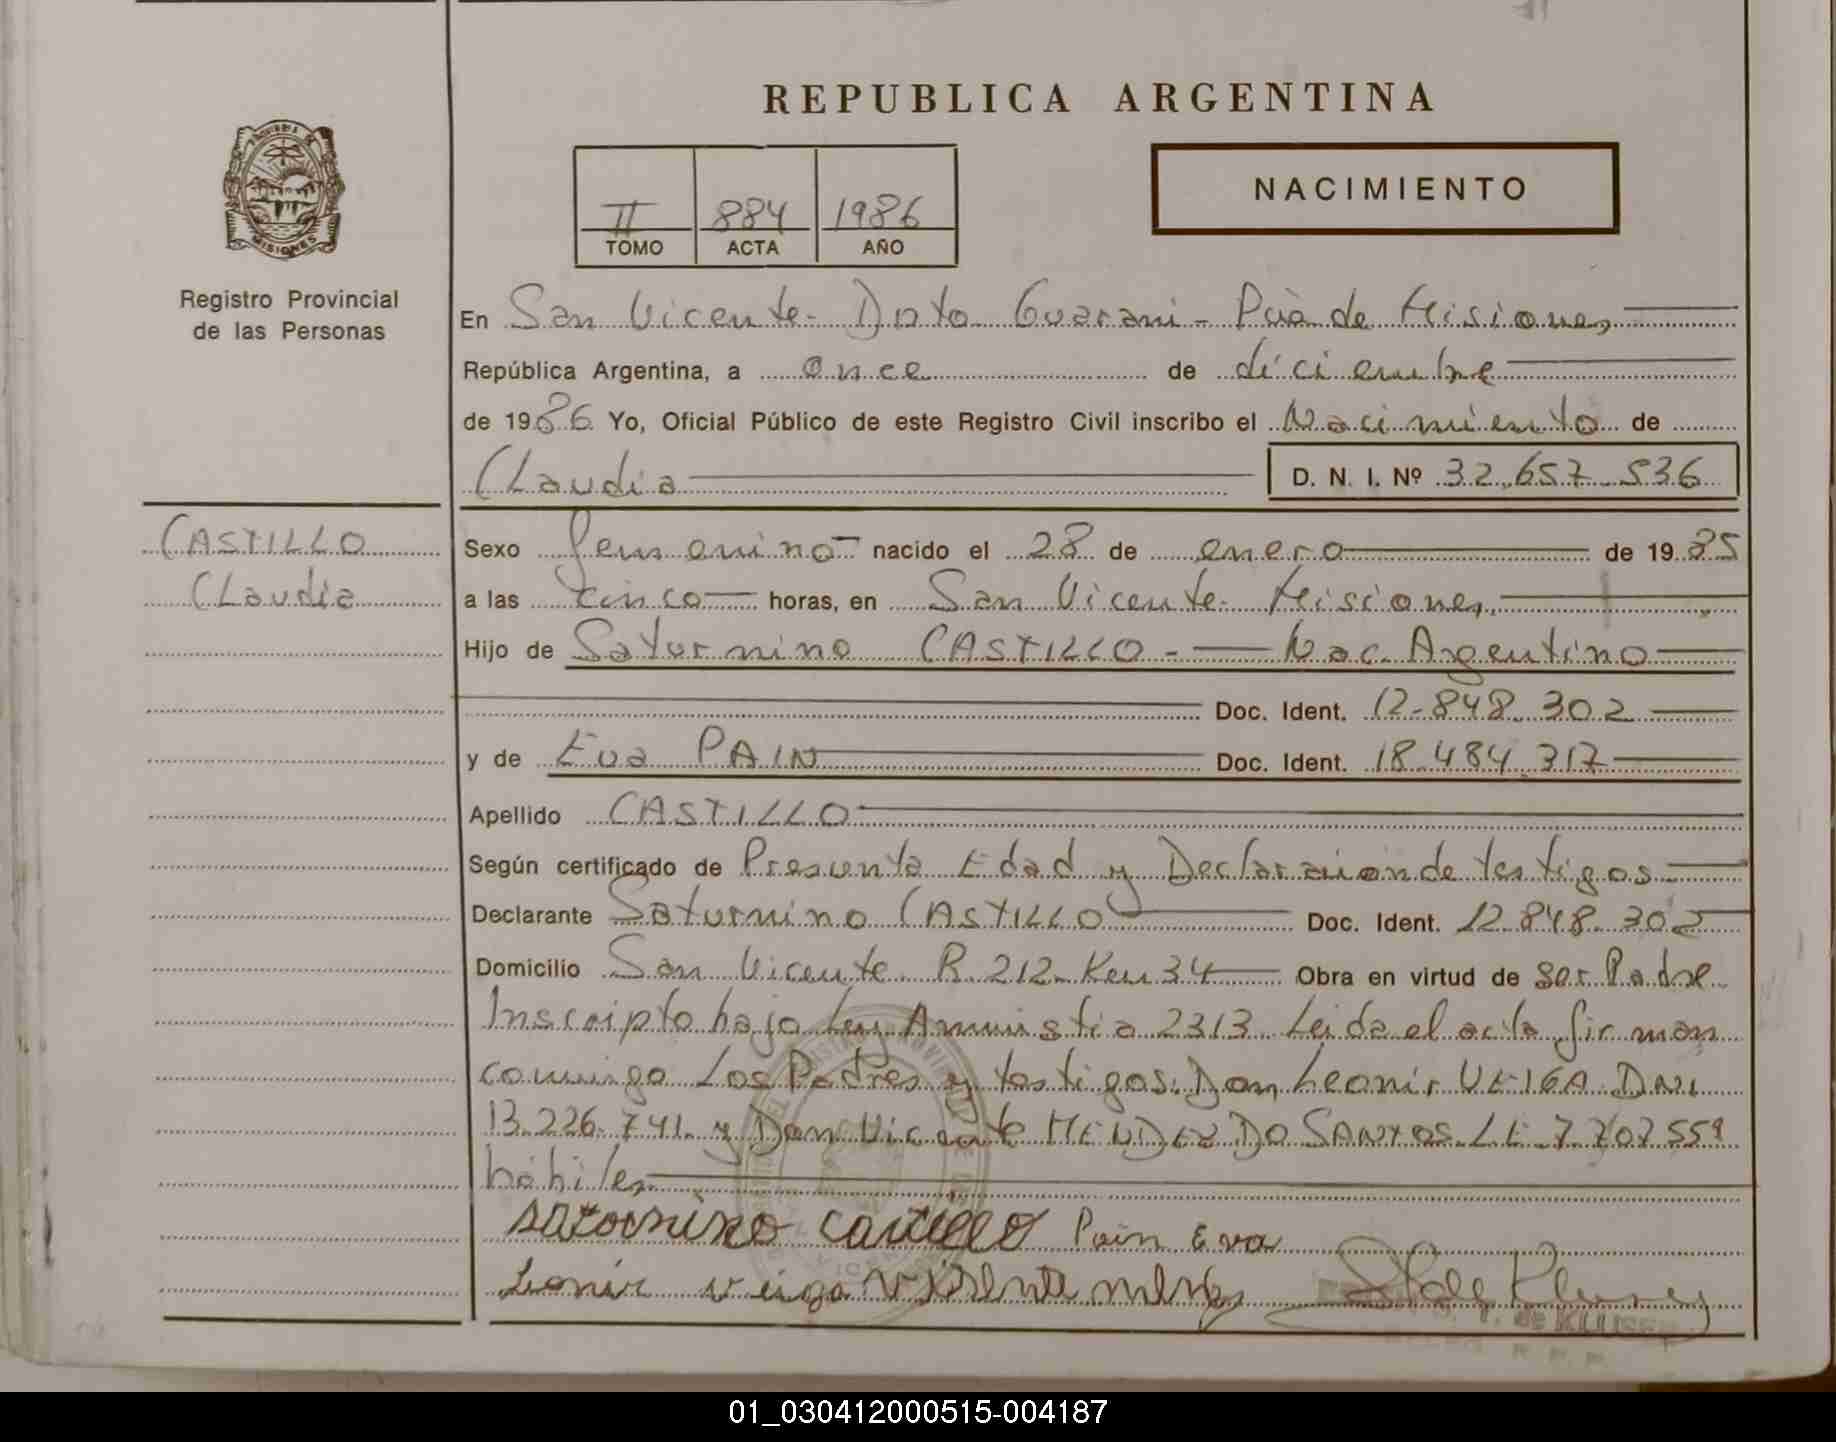 REPUBLICA ARGENTINA
NACIMIENTO
II 884 1986
TOMO ACTA AÑO
MISIONES
Registro Provincial
de las Personas
En San Vicente - Dpto Guarani - Pcia de Misiones
República Argentina, a once de diciembre
de 1986 Yo, Oficial Público de este Registro Civil inscribo el Nacimiento de
Claudia D. N. I. Nº 32.657.536
CASTILLO
Claudia
Sexo femenino nacido el 28 de enero de 1985
a las cinco horas, en San Vicente - Misiones
Hijo de Saturnino CASTILLO - Nac. Argentino
Doc. Ident. 12.848.302
y de Eva PAIN Doc. Ident. 18.484.317
Apellido CASTILLO
Según certificado de Presunta Edad y Declaración de testigos
Declarante Saturnino CASTILLO Doc. Ident. 12.848.302
Domicilio San Vicente R. 212 - Km 34 Obra en virtud de ser Padre
Inscripto bajo Ley Amnistia 2313 Leida el acta firman
conmigo Los Padres y testigos: Don Leonir VEIGA DNI
13.226.741 y Don Vicente MENDEZ DO SANTOS L E 7.707.559
hábiles
Satornino Castillo Pain Eva
Leonir Veiga Visente
de KLUSEN
01_030412000515-004187